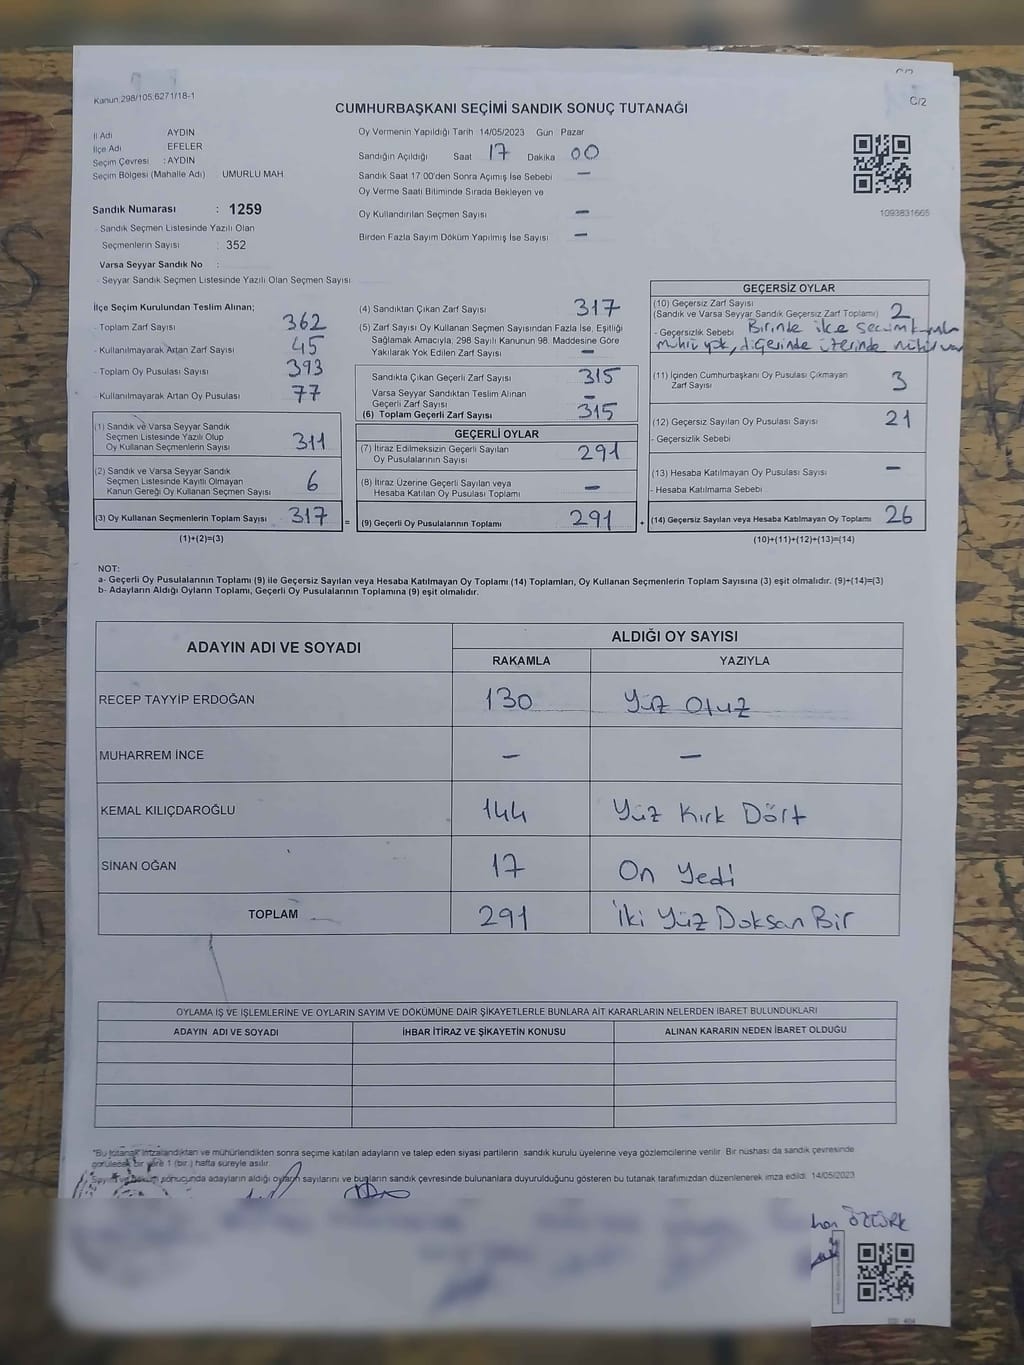 Kanun 298/105,6271/18-1
C/2
CUMHURBAŞKANI SEÇİMİ SANDIK SONUÇ TUTANAĞI
İl Adı AYDIN
İlçe Adı EFELER
Seçim Çevresi : AYDIN
Seçim Bölgesi (Mahalle Adı) UMURLU MAH
Sandık Numarası : 1259
- Sandık Seçmen Listesinde Yazılı Olan
Seçmenlerin Sayısı : 352
Varsa Seyyar Sandık No :
- Seyyar Sandık Seçmen Listesinde Yazılı Olan Seçmen Sayısı
Oy Vermenin Yapıldığı Tarih 14/05/2023 Gün Pazar
Sandığın Açıldığı Saat 17 Dakika 00
Sandık Saat 17 00'den Sonra Açımış İse Sebebi –
Oy Verme Saati Bitiminde Sırada Bekleyen ve
Oy Kullandırılan Seçmen Sayısı –
Birden Fazla Sayım Döküm Yapılmış İse Sayısı –
1093831665
İlçe Seçim Kurulundan Teslim Alınan;
- Toplam Zarf Sayısı 362
- Kullanılmayarak Artan Zarf Sayısı 45
- Toplam Oy Pusulası Sayısı 393
- Kullanılmayarak Artan Oy Pusulası 77
(1) Sandık ve Varsa Seyyar Sandık
Seçmen Listesinde Yazılı Olup
Oy Kullanan Seçmenlerin Sayısı 311
(2) Sandık ve Varsa Seyyar Sandık
Seçmen Listesinde Kayıtlı Olmayan
Kanun Gereği Oy Kullanan Seçmen Sayısı 6
(3) Oy Kullanan Seçmenlerin Toplam Sayısı 317 =
(1)+(2)=(3)
(4) Sandıktan Çıkan Zarf Sayısı 317
(5) Zarf Sayısı Oy Kullanan Seçmen Sayısından Fazla İse, Eşitliği
Sağlamak Amacıyla, 298 Sayılı Kanunun 98. Maddesine Göre
Yakılarak Yok Edilen Zarf Sayısı –
Sandıkta Çıkan Geçerli Zarf Sayısı 315
Varsa Seyyar Sandıktan Teslim Alınan
Geçerli Zarf Sayısı –
(6) Toplam Geçerli Zarf Sayısı 315
GEÇERLİ OYLAR
(7) İtiraz Edilmeksizin Geçerli Sayılan
Oy Pusulalarının Sayısı 291
(8) İtiraz Üzerine Geçerli Sayılan veya
Hesaba Katılan Oy Pusulası Toplamı –
(9) Geçerli Oy Pusulalarının Toplamı 291 +
GEÇERSİZ OYLAR
(10) Geçersiz Zarf Sayısı
(Sandık ve Varsa Seyyar Sandık Geçersiz Zarf Toplamı) 2
- Geçersizlik Sebebi Birinde ilçe seçim
mührü yok, diğerinde üzerinde mühür var
(11) İçinden Cumhurbaşkanı Oy Pusulası Çıkmayan
Zarf Sayısı 3
(12) Geçersiz Sayılan Oy Pusulası Sayısı 21
- Geçersizlik Sebebi
(13) Hesaba Katılmayan Oy Pusulası Sayısı –
- Hesaba Katılmama Sebebi
(14) Geçersiz Sayılan veya Hesaba Katılmayan Oy Toplamı 26
(10)+(11)+(12)+(13)=(14)
NOT:
a- Geçerli Oy Pusulalarının Toplamı (9) ile Geçersiz Sayılan veya Hesaba Katılmayan Oy Toplamı (14) Toplamları, Oy Kullanan Seçmenlerin Toplam Sayısına (3) eşit olmalıdır. (9)+(14)=(3)
b- Adayların Aldığı Oyların Toplamı, Geçerli Oy Pusulalarının Toplamına (9) eşit olmalıdır.
ADAYIN ADI VE SOYADI ALDIĞI OY SAYISI
RAKAMLA YAZIYLA
RECEP TAYYİP ERDOĞAN 130 Yüz Otuz
MUHARREM İNCE – –
KEMAL KILIÇDAROĞLU 144 Yüz Kırk Dört
SİNAN OĞAN 17 On Yedi
TOPLAM 291 İki Yüz Doksan Bir
OYLAMA İŞ VE İŞLEMLERİNE VE OYLARIN SAYIM VE DÖKÜMÜNE DAİR ŞİKAYETLERLE BUNLARA AİT KARARLARIN NELERDEN İBARET BULUNDUKLARI
ADAYIN ADI VE SOYADI İHBAR İTİRAZ VE ŞİKAYETİN KONUSU ALINAN KARARIN NEDEN İBARET OLDUĞU
"Bu tutanak" imzalandıktan ve mühürlendikten sonra seçime katılan adayların ve talep eden siyasi partilerin sandık kurulu üyelerine veya gözlemcilerine verilir Bir nüshası da sandık çevresinde
görülecek bir yere 1 (bir ) hafta süreyle asılır
Sayım ve döküm sonucunda adayların aldığı oyların sayılarını ve bunların sandık çevresinde bulunanlara duyurulduğunu gösteren bu tutanak tarafımızdan düzenlenerek imza edildi. 14/05/2023
ÖZTÜRK